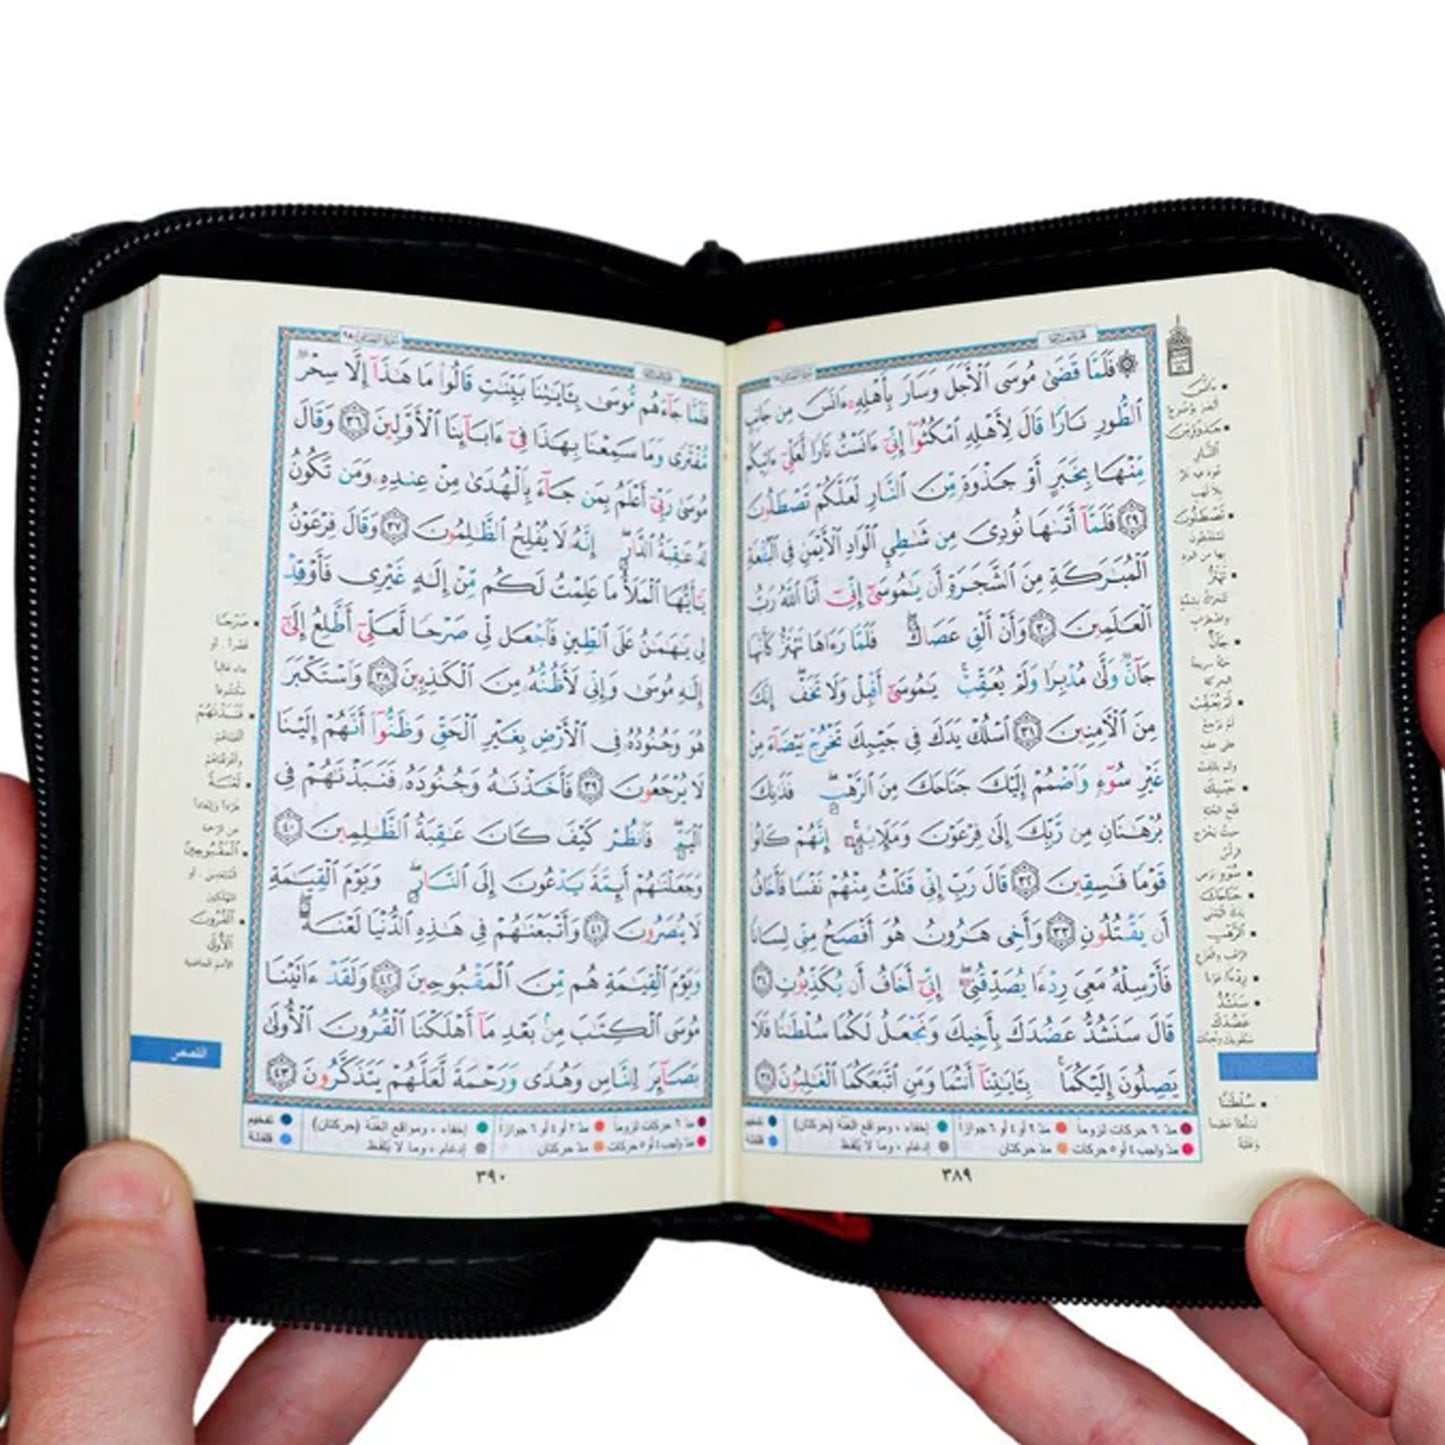 ۞ فَلَمَّا قَضَىٰ مُوسَى ٱلْأَجَلَ وَسَارَ بِأَهْلِهِۦٓ ءَانَسَ مِن جَانِبِ
ٱلطُّورِ نَارًا قَالَ لِأَهْلِهِ ٱمْكُثُوٓا۟ إِنِّىٓ ءَانَسْتُ نَارًا لَّعَلِّىٓ ءَاتِيكُم
مِّنْهَا بِخَبَرٍ أَوْ جَذْوَةٍ مِّنَ ٱلنَّارِ لَعَلَّكُمْ تَصْطَلُونَ
﴿٢٩﴾ فَلَمَّآ أَتَىٰهَا نُودِىَ مِن شَٰطِئِ ٱلْوَادِ ٱلْأَيْمَنِ فِى ٱلْبُقْعَةِ
ٱلْمُبَٰرَكَةِ مِنَ ٱلشَّجَرَةِ أَن يَٰمُوسَىٰٓ إِنِّىٓ أَنَا ٱللَّهُ رَبُّ
ٱلْعَٰلَمِينَ ﴿٣٠﴾ وَأَنْ أَلْقِ عَصَاكَ ۖ فَلَمَّا رَءَاهَا تَهْتَزُّ كَأَنَّهَا
جَآنٌّ وَلَّىٰ مُدْبِرًا وَلَمْ يُعَقِّبْ ۚ يَٰمُوسَىٰٓ أَقْبِلْ وَلَا تَخَفْ ۖ إِنَّكَ
مِنَ ٱلْءَامِنِينَ ﴿٣١﴾ ٱسْلُكْ يَدَكَ فِى جَيْبِكَ تَخْرُجْ بَيْضَآءَ مِنْ
غَيْرِ سُوٓءٍ وَٱضْمُمْ إِلَيْكَ جَنَاحَكَ مِنَ ٱلرَّهْبِ ۖ فَذَٰنِكَ
بُرْهَٰنَانِ مِن رَّبِّكَ إِلَىٰ فِرْعَوْنَ وَمَلَإِي۟هِۦٓ ۚ إِنَّهُمْ كَانُوا۟
قَوْمًا فَٰسِقِينَ ﴿٣٢﴾ قَالَ رَبِّ إِنِّى قَتَلْتُ مِنْهُمْ نَفْسًا فَأَخَافُ
أَن يَقْتُلُونِ ﴿٣٣﴾ وَأَخِى هَٰرُونُ هُوَ أَفْصَحُ مِنِّى لِسَانًا
فَأَرْسِلْهُ مَعِىَ رِدْءًا يُصَدِّقُنِىٓ ۖ إِنِّىٓ أَخَافُ أَن يُكَذِّبُونِ ﴿٣٤﴾
قَالَ سَنَشُدُّ عَضُدَكَ بِأَخِيكَ وَنَجْعَلُ لَكُمَا سُلْطَٰنًا فَلَا
يَصِلُونَ إِلَيْكُمَا ۚ بِـَٔايَٰتِنَآ أَنتُمَا وَمَنِ ٱتَّبَعَكُمَا ٱلْغَٰلِبُونَ ﴿٣٥﴾
تَصْطَلُونَ
تَهْتَزُّ
جَآنٌّ
لَمْ يُعَقِّبْ
جَيْبِكَ
جَنَاحَكَ
الرَّهْبِ
سَنَشُدُّ
عَضُدَكَ
سُلْطَٰنًا
مدّ ٦ حركات لزوماً مدّ ٢ أو ٤ أو ٦ جوازاً إخفاء ، ومواقع الغنّة (حركتان) تفخيم
مدّ واجب ٤ أو ٥ حركات مدّ حركتان إدغام ، وما لا يلفظ قلقلة
٣٨٩
فَلَمَّا جَآءَهُم مُّوسَىٰ بِـَٔايَٰتِنَا بَيِّنَٰتٍ قَالُوا۟ مَا هَٰذَآ إِلَّا سِحْرٌ
مُّفْتَرًى وَمَا سَمِعْنَا بِهَٰذَا فِىٓ ءَابَآئِنَا ٱلْأَوَّلِينَ ﴿٣٦﴾ وَقَالَ
مُوسَىٰ رَبِّىٓ أَعْلَمُ بِمَن جَآءَ بِٱلْهُدَىٰ مِنْ عِندِهِۦ وَمَن تَكُونُ
لَهُۥ عَٰقِبَةُ ٱلدَّارِ ۖ إِنَّهُۥ لَا يُفْلِحُ ٱلظَّٰلِمُونَ ﴿٣٧﴾ وَقَالَ فِرْعَوْنُ
يَٰٓأَيُّهَا ٱلْمَلَأُ مَا عَلِمْتُ لَكُم مِّنْ إِلَٰهٍ غَيْرِى فَأَوْقِدْ
لِى يَٰهَٰمَٰنُ عَلَى ٱلطِّينِ فَٱجْعَل لِّى صَرْحًا لَّعَلِّىٓ أَطَّلِعُ إِلَىٰٓ
إِلَٰهِ مُوسَىٰ وَإِنِّى لَأَظُنُّهُۥ مِنَ ٱلْكَٰذِبِينَ ﴿٣٨﴾ وَٱسْتَكْبَرَ
هُوَ وَجُنُودُهُۥ فِى ٱلْأَرْضِ بِغَيْرِ ٱلْحَقِّ وَظَنُّوٓا۟ أَنَّهُمْ إِلَيْنَا
لَا يُرْجَعُونَ ﴿٣٩﴾ فَأَخَذْنَٰهُ وَجُنُودَهُۥ فَنَبَذْنَٰهُمْ فِى
ٱلْيَمِّ ۖ فَٱنظُرْ كَيْفَ كَانَ عَٰقِبَةُ ٱلظَّٰلِمِينَ ﴿٤٠﴾
وَجَعَلْنَٰهُمْ أَئِمَّةً يَدْعُونَ إِلَى ٱلنَّارِ ۖ وَيَوْمَ ٱلْقِيَٰمَةِ
لَا يُنصَرُونَ ﴿٤١﴾ وَأَتْبَعْنَٰهُمْ فِى هَٰذِهِ ٱلدُّنْيَا لَعْنَةً ۖ
وَيَوْمَ ٱلْقِيَٰمَةِ هُم مِّنَ ٱلْمَقْبُوحِينَ ﴿٤٢﴾ وَلَقَدْ ءَاتَيْنَا
مُوسَى ٱلْكِتَٰبَ مِنۢ بَعْدِ مَآ أَهْلَكْنَا ٱلْقُرُونَ ٱلْأُولَىٰ
بَصَآئِرَ لِلنَّاسِ وَهُدًى وَرَحْمَةً لَّعَلَّهُمْ يَتَذَكَّرُونَ ﴿٤٣﴾
صَرْحًا
قصراً ، أو
بناء عالياً
مكشوفاً
فَنَبَذْنَٰهُمْ
ألقيناهم
وأغرقناهم
لَعْنَةً
طرداً وإبعاداً
عن الرحمة
الْمَقْبُوحِينَ
المبعدين ، أو
المهلكين
الْقُرُونَ
الْأُولَىٰ
الأمم الماضية
القصص
مدّ ٦ حركات لزوماً مدّ ٢ أو ٤ أو ٦ جوازاً إخفاء ، ومواقع الغنّة (حركتان) تفخيم
مدّ واجب ٤ أو ٥ حركات مدّ حركتان إدغام ، وما لا يلفظ قلقلة
٣٩٠